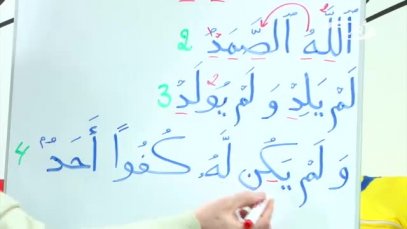 اَللَّهُ الصَّمَدُ 2
لَمْ يَلِدْ وَ لَمْ يُولَدْ 3
وَ لَمْ يَكُن لَّهُ كُفُوًا أَحَدٌ 4